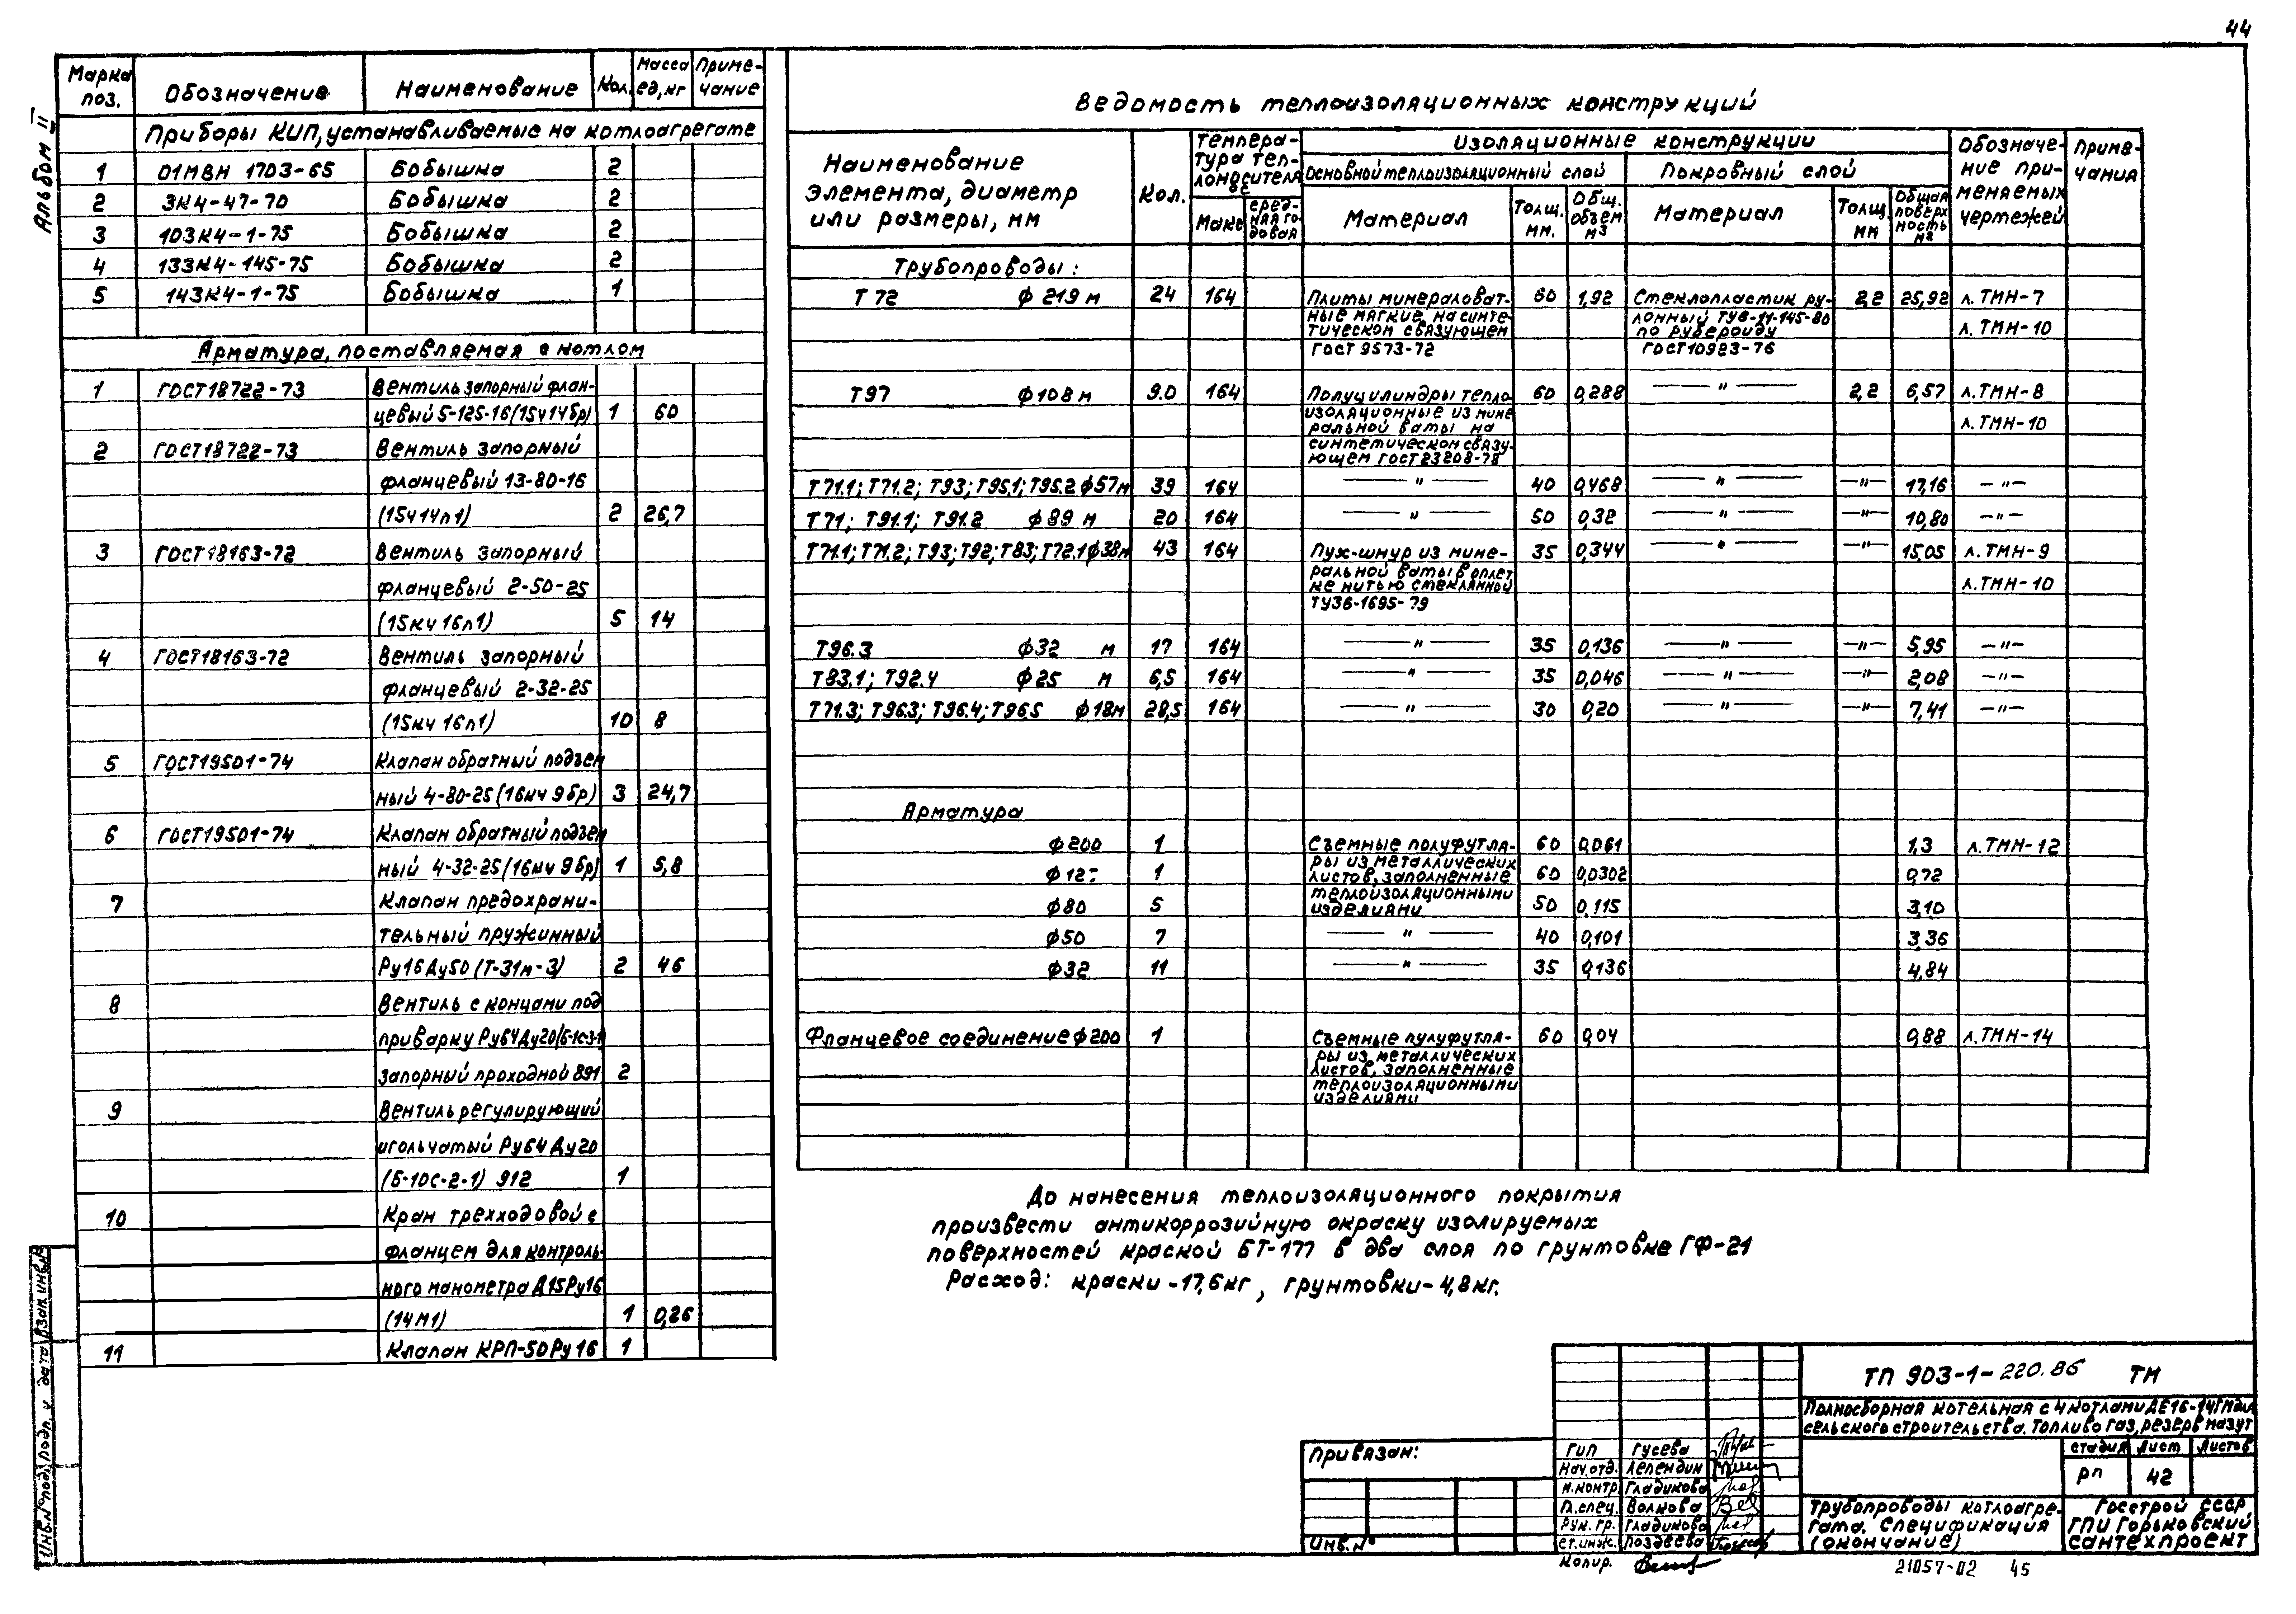 44
Альбом II
Марка поз. Обозначение Наименование Кол. Масса ед, кг Примечание
Приборы КИП, устанавливаемые на котлоагрегате
1 01МВН 1703-65 Бобышка 2
2 3К4-47-70 Бобышка 2
3 103К4-1-75 Бобышка 2
4 133К4-145-75 Бобышка 2
5 143К4-1-75 Бобышка 1
Арматура, поставляемая с котлом
1 ГОСТ18722-73 Вентиль запорный флан-
цевый 5-125-16 (15ч14бр) 1 60
2 ГОСТ18722-73 Вентиль запорный
фланцевый 13-80-16
(15ч14п1) 2 26,7
3 ГОСТ18163-72 Вентиль запорный
фланцевый 2-50-25
(15кч16п1) 5 14
4 ГОСТ18163-72 Вентиль запорный
фланцевый 2-32-25
(15кч16п1) 10 8
5 ГОСТ19501-74 Клапан обратный подъем
ный 4-80-25 (16кч 9бр) 3 24,7
6 ГОСТ19501-74 Клапан обратный подъем
ный 4-32-25 (16кч 9бр) 1 5,8
7 Клапан предохрани-
тельный пружинный
Ру16Ду50 (Т-31м-3) 2 46
8 Вентиль с концами под
приварку Ру64Ду20
запорный проходной 891 2
9 Вентиль регулирующий
игольчатый Ру64 Ду20
(Б-10С-2-1) 912 1
10 Кран трехходовой с
фланцем для контроль-
ного манометра Д15Ру16
(14М1) 1 0,26
11 Клапан КРП-50Ру16 1
Ведомость теплоизоляционных конструкций
Наименование элемента, диаметр или размеры, мм
Кол.
Температура теплоносителя °С
Макс
Среднегодовая
Изоляционные конструкции
Основной теплоизоляционный слой
Покровный слой
Материал Толщ. мм. Общ. объем м3
Материал Толщ. мм Общая поверхность м2
Обозначение применяемых чертежей
Примечания
Трубопроводы:
Т72 ф 219 м 24 164 Плиты минераловат- 60 1,92 Стеклопластик ру- 2,2 25,92 л. ТМН-7
ные мягкие на синте- лонный ТУ6-11-145-80
тическом связующем по рубероиду л. ТМН-10
ГОСТ 9573-72 ГОСТ10923-76
Т97 ф108 м 9.0 164 Полуцилиндры тепло 60 0,288 — " — 2,2 6,57 л. ТМН-8
изоляционные из мине
ральной ваты на л. ТМН-10
синтетическом связу-
ющем ГОСТ23208-78
Т71.1; Т71.2; Т93; Т95.1; Т95.2 ф57м 39 164 — " — 40 0,468 — " — — " — 17,16 — " —
Т71; Т91.1; Т91.2 ф89 м 20 164 — " — 50 0,32 — " — — " — 10,80 — " —
Т71.1; Т71.2; Т93; Т92; Т83; Т72.1 ф38м 43 164 Пух-шнур из мине- 35 0,344 — " — — " — 15,05 л. ТМН-9
ральной ваты в оплет
ке нитью стеклянной л. ТМН-10
ТУ36-1695-79
Т96.3 ф32 м 17 164 — " — 35 0,136 — " — — " — 5,95 — " —
Т83.1; Т92.4 ф25 м 6,5 164 — " — 35 0,046 — " — — " — 2,08 — " —
Т71.3; Т96.3; Т96.4; Т96.5 ф18м 28,5 164 — " — 30 0,20 — " — — " — 7,41 — " —
Арматура
ф200 1 Съемные полуфутля- 60 0,061 1,3 л. ТМН-12
ры из металлических
ф12 1 листов, заполненные 60 0,0302 0,72
теплоизоляционными
ф80 5 изделиями 50 0,115 3,10
ф50 7 — " — 40 0,101 3,36
ф32 11 — " — 35 0,136 4,84
Фланцевое соединение ф200 1 Съемные пулуфутля- 60 0,04 0,88 л. ТМН-14
ры из металлических
листов, заполненные
теплоизоляционными
изделиями
До нанесения теплоизоляционного покрытия
произвести антикоррозийную окраску изолируемых
поверхностей краской БТ-177 в два слоя по грунтовке ГФ-21
Расход: краски -17,6кг, грунтовки- 4,8кг.
ТП 903-1-220.86 ТМ
Полносборная котельная с 4 котлами ДЕ16-14ГМ для
сельского строительства. Топливо газ, резерв мазут
стадия Лист Листов
РП 42
Трубопроводы котлоагре-
гата. Спецификация
(окончание)
Госстрой СССР
ГПИ Горьковский
Сантехпроект
Привязан:
Инв. №
ГИП Гусева
Нач.отд. Лепендин
Н.контр Гладикова
Гл.спец. Волкова
Рук. гр. Гладикова
Ст.инж. Поздеева
Копир.
21057-02 45
Инв.№ подл. Подп. и дата Взам инв.№